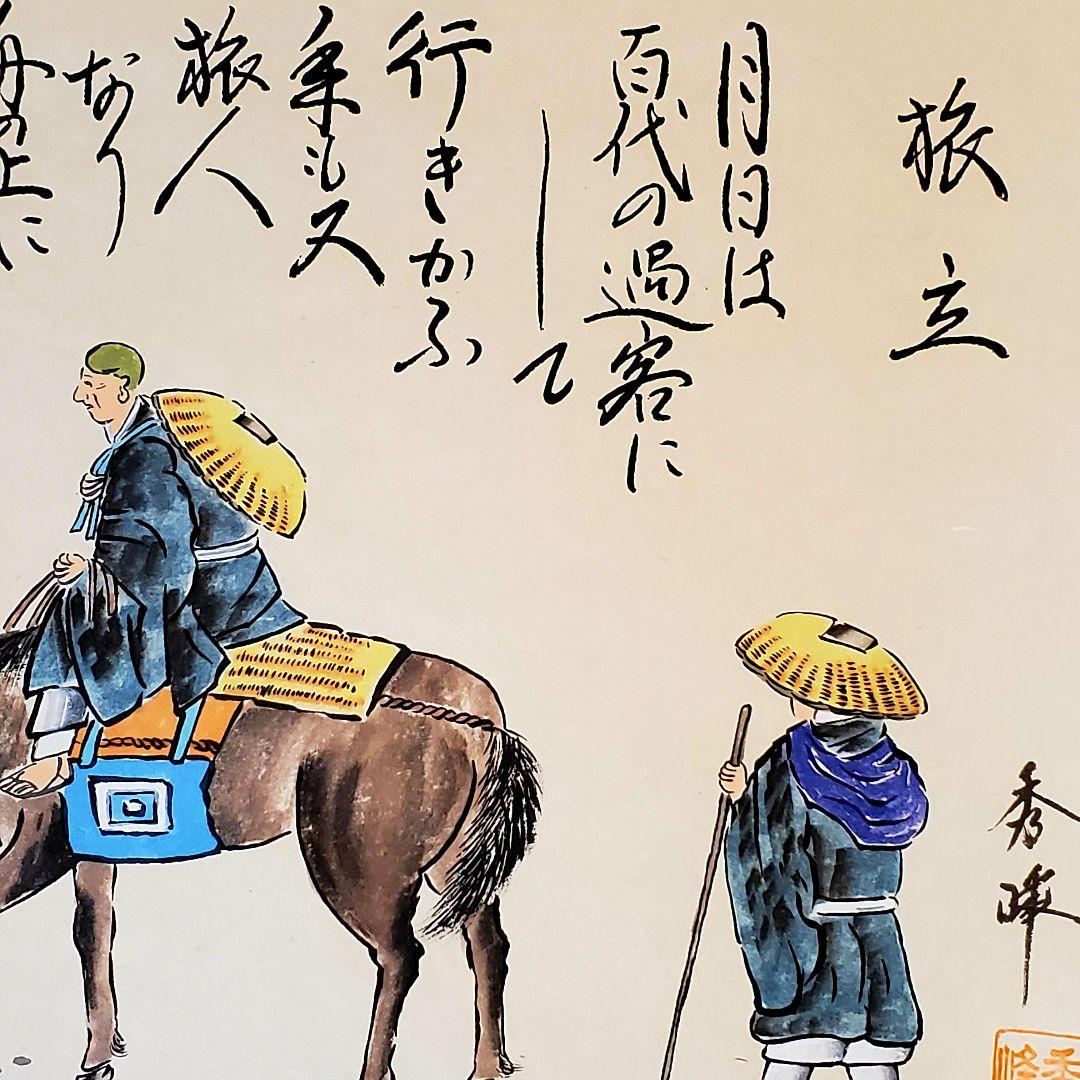 旅立
月日は
百代の過客に
して
行きかふ
年も又
旅人
なり
舟の上に
秀